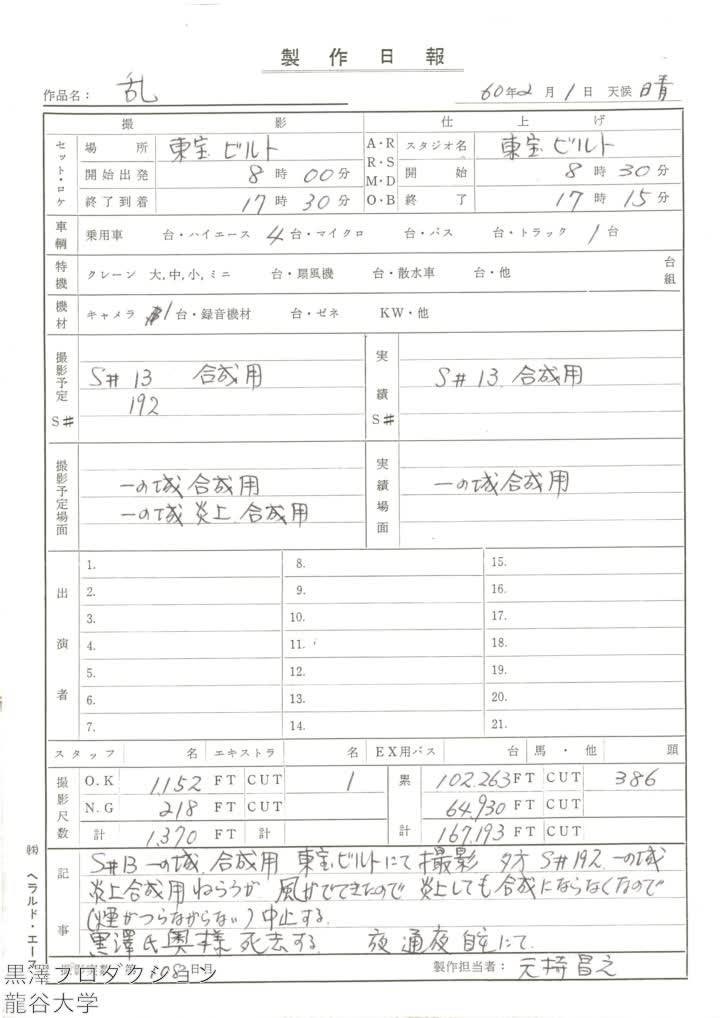 製作日報
作品名： 乱 60年2月1日 天候 晴
撮影 仕上げ
セット・ロケ 場所 東宝ビルト A・R R・S M・D O・B スタジオ名 東宝ビルト
開始出発 8時00分 開始 8時30分
終了到着 17時30分 終了 17時15分
車輌 乗用車 台・ハイエース 4台・マイクロ 台・バス 台・トラック 1台
特機 クレーン 大,中,小,ミニ 台・扇風機 台・散水車 台・他 台組
機材 キャメラ 1台・録音機材 台・ゼネ KW・他
撮影予定 S# S# 13 合成用 実績 S# S# 13 合成用
192
撮影予定場面 一の城 合成用 実績場面 一の城合成用
一の城 炎上 合成用
出演者 1. 8. 15.
2. 9. 16.
3. 10. 17.
4. 11. 18.
5. 12. 19.
6. 13. 20.
7. 14. 21.
スタッフ 名 エキストラ 名 EX用バス 台 馬・他 頭
撮影尺数 O.K 1,152 FT CUT 1 累計 102.263 FT CUT 386
N.G 218 FT CUT 64.930 FT CUT
計 1,370 FT 計 167.193 FT CUT
記事 S#13 一の城 合成用 東宝ビルトにて撮影 夕方 S#192 一の城
炎上合成用ねらうが、風がでてきたので 炎上しても合成にならなくなので
(煙がつながらない) 中止する。
黒澤氏奥様 死去する。 夜 通夜 自宅にて.
撮影実数 第108日目 製作担当者：
㈱ ヘラルド・エース
黒澤プロダクション
龍谷大学